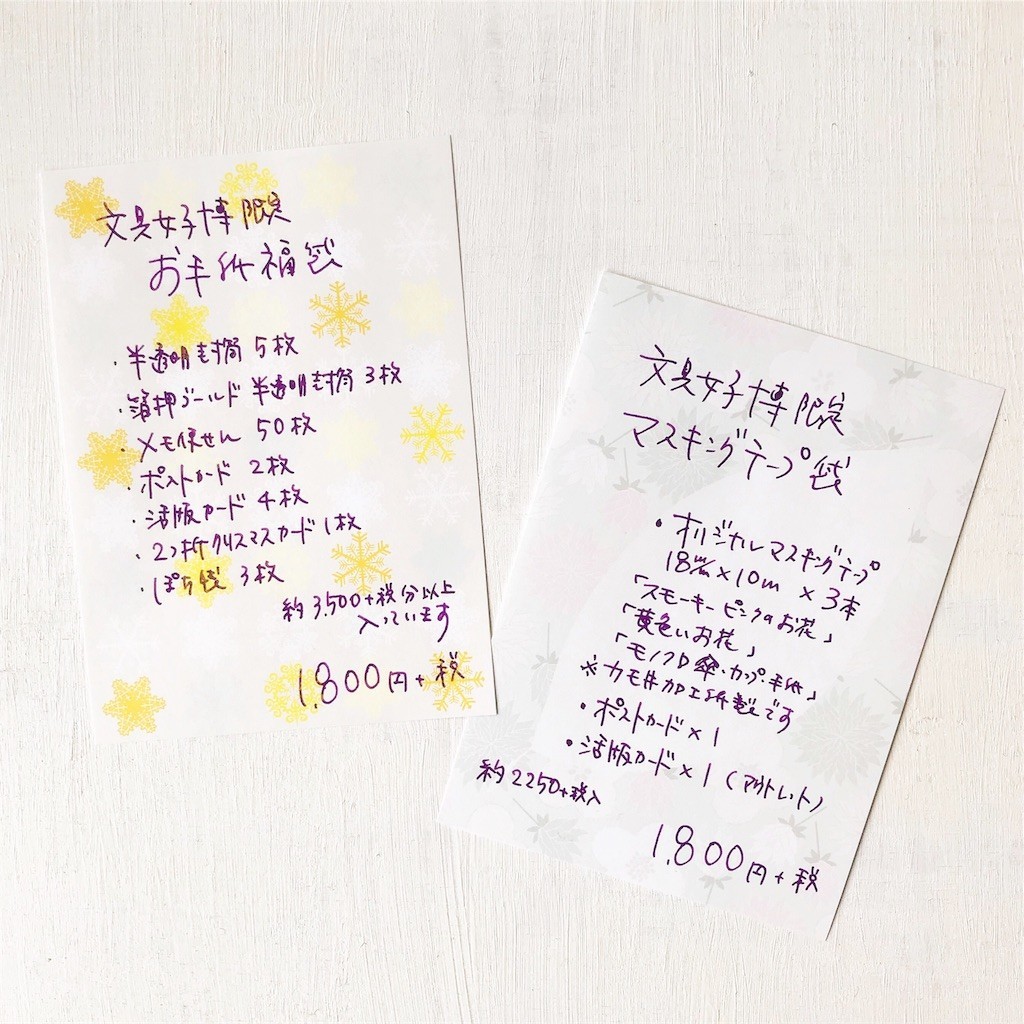 文具女子博限定
お手紙福袋
・半透明封筒 5枚
・箔押ゴールド 半透明封筒 3枚
・メモ便せん 50枚
・ポストカード 2枚
・活版カード 4枚
・2つ折クリスマスカード 1枚
・ぽち袋 3枚
約3,500+税分以上
入っています
1,800円+税
文具女子博限定
マスキングテープ袋
・オリジナルマスキングテープ
18㎜×10m×3本
「スモーキーピンクのお花」
「黄色いお花」
「モノクロ 傘・カップ・手紙」
※カモ井加工紙製です
・ポストカード×1
・活版カード×1 (アウトレット)
約2250+税入
1,800円+税